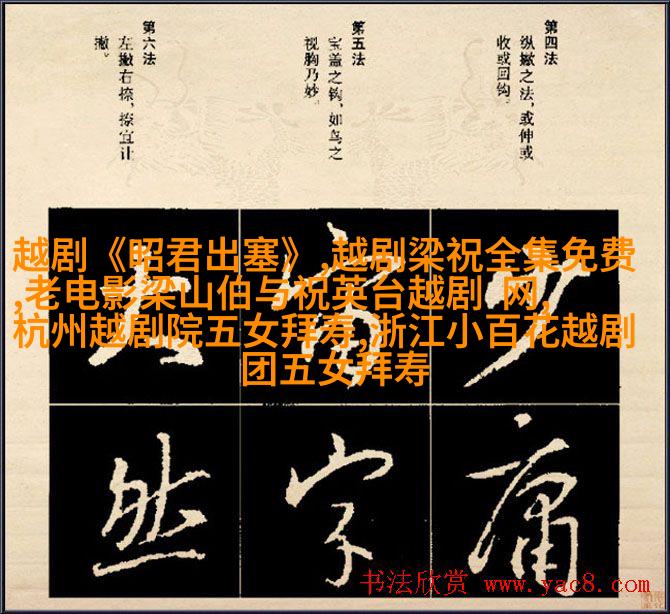 第四法
纵撇之法，或伸或
收或回钩。
第五法
宝盖之钩，如鸟之
视胸乃妙。
第六法
左撇右捺，捺宜让
撇。
越剧《昭君出塞》,越剧梁祝全集免费
,老电影梁山伯与祝英台越剧 网,
杭州越剧院五女拜寿,浙江小百花越剧
团五女拜寿
少
宙
大
庸
字
然
书法欣赏 www.yac8.com